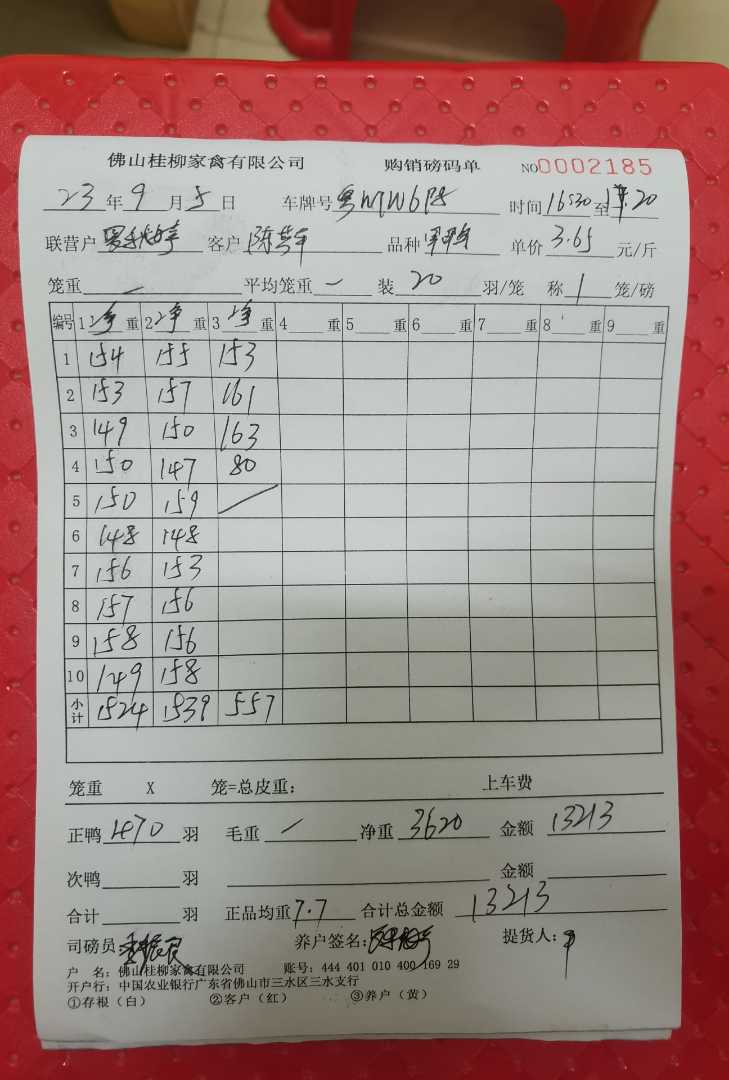 佛山桂柳家禽有限公司 购销磅码单 NO 0002185
23年9月5日 车牌号 时间16:30至
联营户 客户 品种 单价3.65元/斤
笼重 — 平均笼重 — 装20羽/笼 称1笼/磅
编号 1净重 2净重 3净重 4 重 5 重 6 重 7 重 8 重 9 重
1 154 155 153
2 153 157 161
3 149 150 163
4 150 147 80
5 150 159 /
6 148 148
7 156 153
8 157 156
9 158 156
10 149 158
小计 1524 1539 557
笼重 X 笼=总皮重: 上车费
正鸭 470 羽 毛重 / 净重 3620 金额 13213
次鸭 羽 金额
合计 羽 正品均重7.7 合计总金额 13213
司磅员: 养户签名: 提货人:
户 名:佛山桂柳家禽有限公司 账号:444 401 010 400 169 29
开户行:中国农业银行广东省佛山市三水区三水支行
①存根(白) ②客户(红) ③养户(黄)